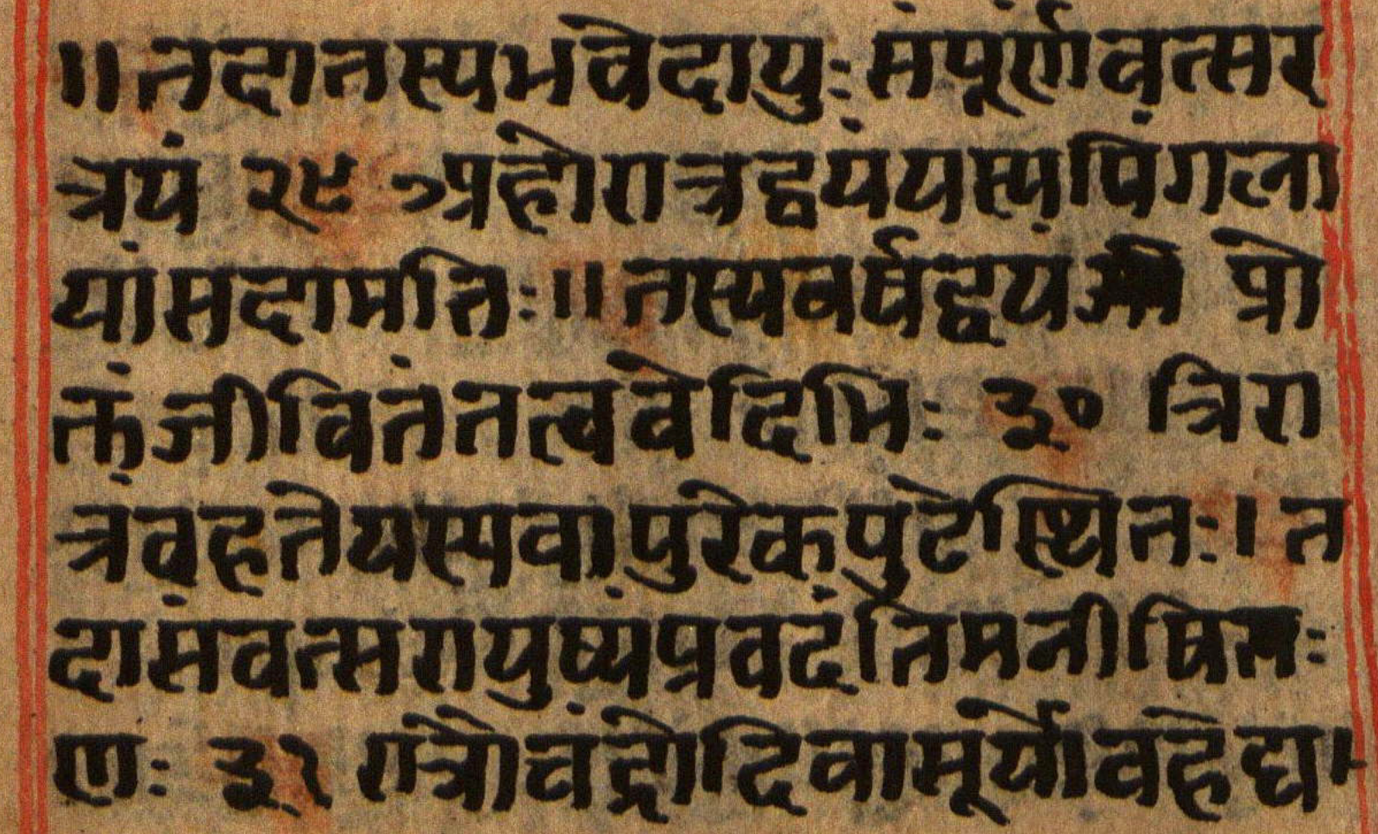 ॥तदातस्यभवेदायुःसंपूर्णंवत्सर
त्रयं २९ अहोरात्रद्वयंयस्यपिंगला
यांसदागतिः॥तस्यवर्षद्वयं प्रो
क्तंजीवितंतत्ववेदिभिः ३० त्रिरा
त्रंवहतेयस्यवायुरेकपुटेस्थितः।त
दासंवत्सरायुष्यंप्रवदंतिमनीषि
णः ३१ रात्रौचंद्रोदिवासूर्योवहेद्य